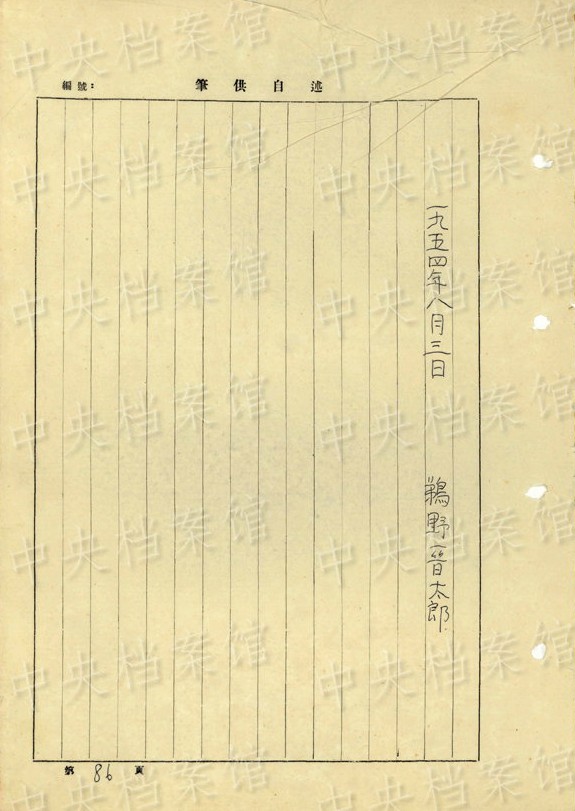 編號：
筆供自述
一九五四年八月三日 鵜野晉太郎
第 86 頁
中央档案馆